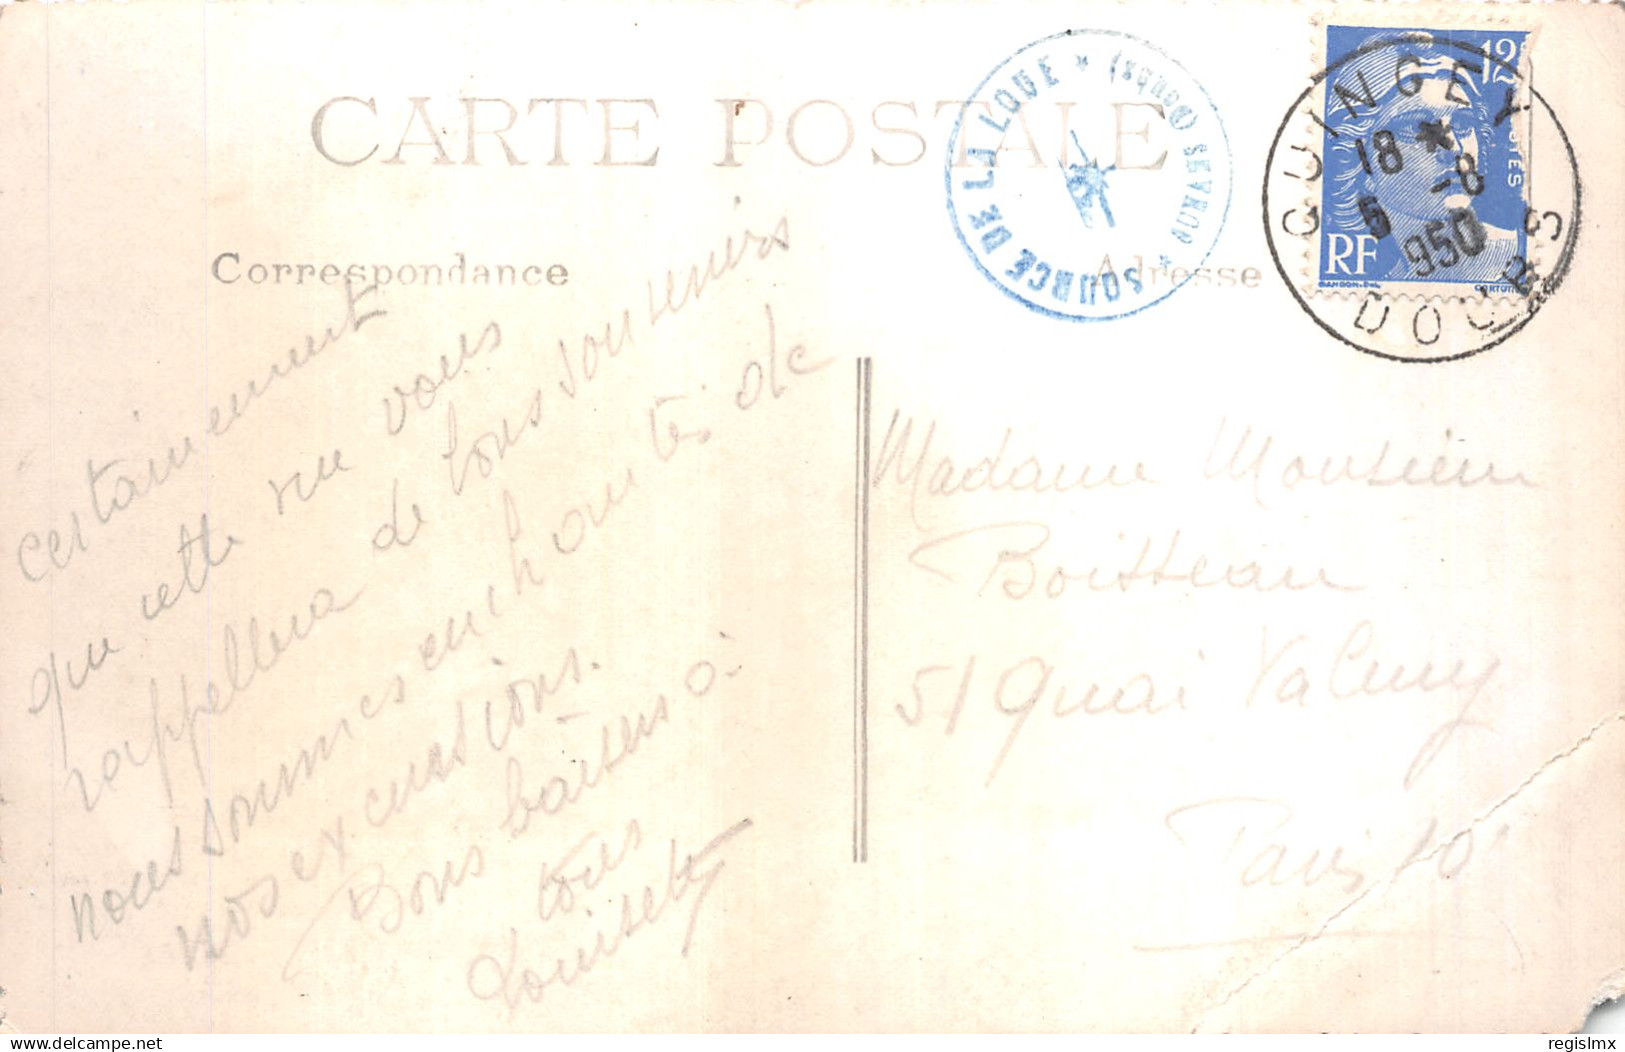 CARTE POSTALE
SOURCE DE LA LOUE * (Doubs) SEVRON *
12F
POSTES
RF
GANDON.DEL
CORTOT
QUINGEY
18 *
5 -8
950
DOUBS
Correspondance
Adresse
certainement
que cette vue vous
rappellera de bons souvenirs
nous sommes enchantés de
nos excursions.
Bons baisers à
tous
Louisette
Madame Monsieur
Boitteau
51 Quai Valmy
Paris 10e
delcampe.net
regislmx